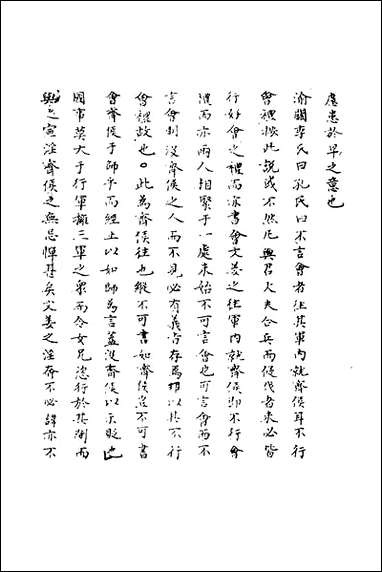 慮患於早之意也
渝關李氏曰孔氏曰不言會者往其軍內就齊侯耳不行
會禮按此說或不然凡與君大夫合兵而侵伐者未必皆
行好會之禮而亦書會文姜之往軍內就齊侯即不行會
禮而亦兩人相聚于一處未始不可言會也可言會而不
言會則沒齊侯之人而不見必有義存焉以其不行
會禮故也。此為齊侯往也縱不可書如齊侯豈不可書
會齊侯于師乎而經止以如師為言蓋沒齊侯以示貶也
國事莫大于行軍擁三軍之眾而令女兄恣行於其間而
與之宣淫齊侯之無忌憚甚矣文姜之淫奔不必諱亦不